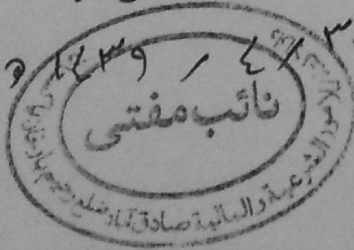 ٣ / ٤ / ١٤٣٩ ھ
نائب مفتی
الشرعیة والمالیة صادق آباد ضلع رحیم یار خان